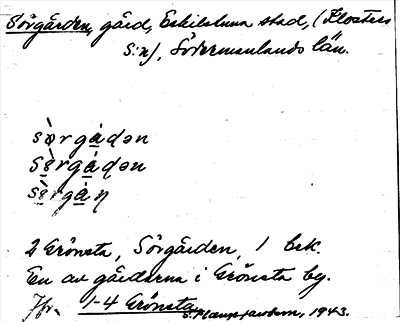 Sörgården, gård, Eskilstuna stad, (Klosters
s:n), Södermanlands län.
sø̀rgádən
sø̀rgáɖən
sø̀rgáɳ
2 Grönsta, Sörgården, 1 brk.
En av gårdarna i Grönsta by.
Jfr. 1-4 Grönsta.
1943.